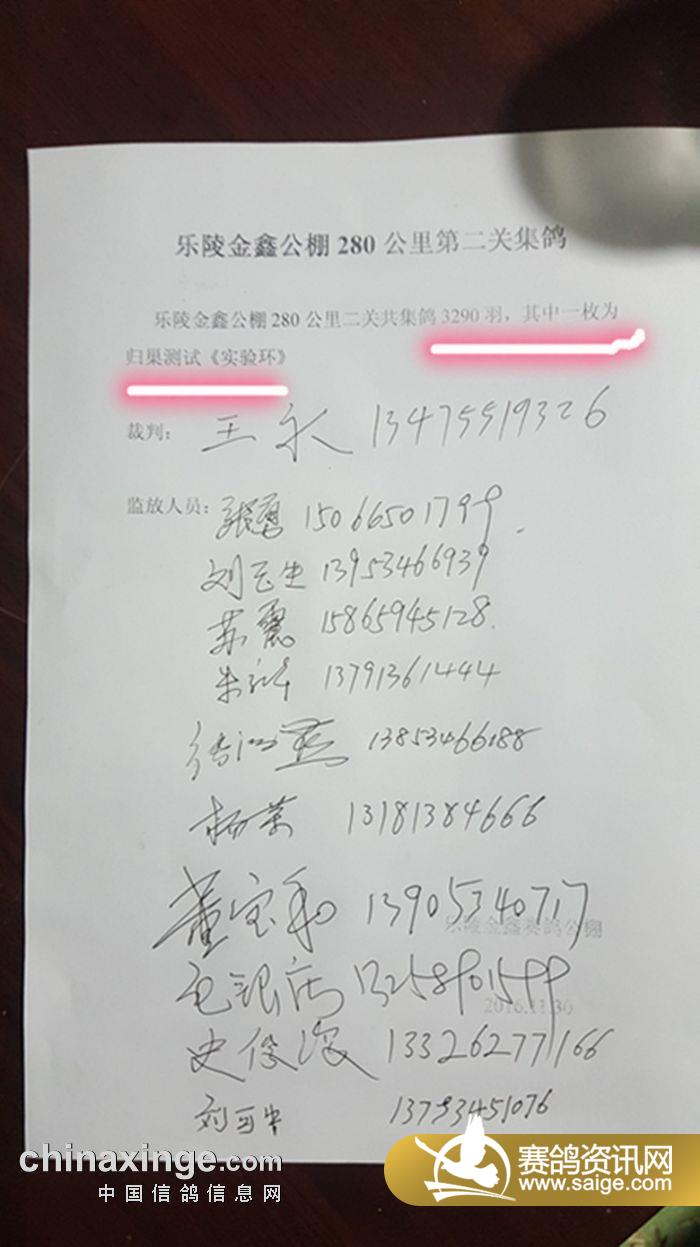 乐陵金鑫公棚 280 公里第二关集鸽
乐陵金鑫公棚 280 公里二关共集鸽 3290 羽，其中一枚为
归巢测试《实验环》
裁判： 王永 13475519326
监放人员： 张勇 15066501799
刘云生 13953466939
苏震 15865945128
朱 13791361444
13853466188
杨荣 13181384666
董宝和 13905340717
乐陵金鑫赛鸽公棚
13258901599
2016.11.30
史俊 13326277166
刘 13793451076
chinaxinge.com
中国信鸽信息网
赛鸽资讯网
www.saige.com